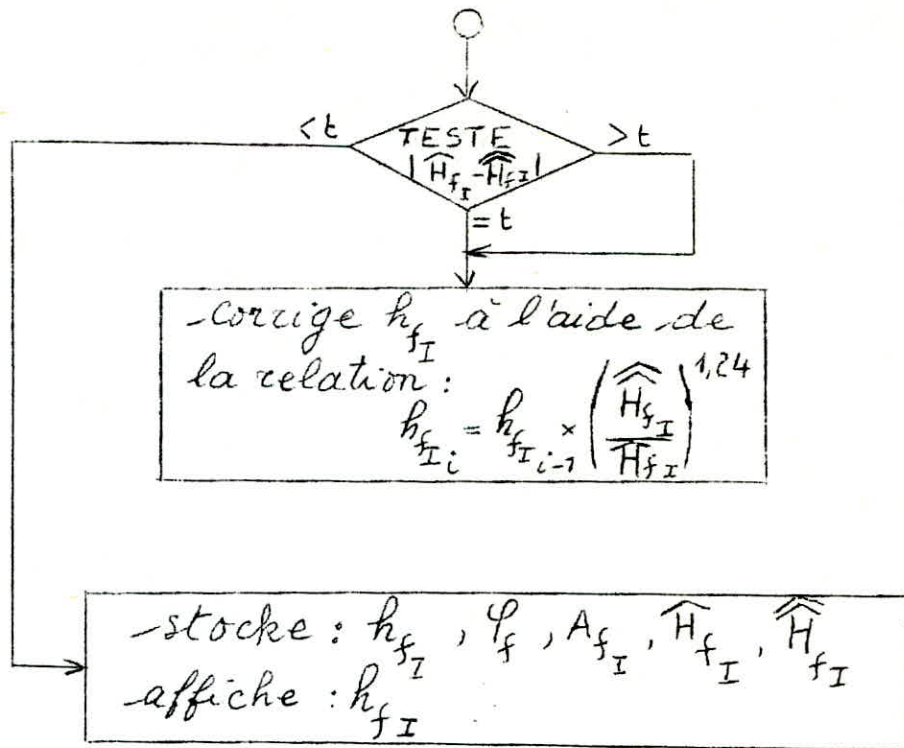 <t
TESTE
>t
|Ĥ_{f_I} - Ĥ̂_{f_I}|
=t
-corrige h_{f_I} à l'aide de
la relation :
h_{f_{I_i}} = h_{f_{I_{i-1}}} × (Ĥ̂_{f_I} / H̅_{f_I})^{1,24}
-stocke : h_{f_I} , φ_f , A_{f_I} , Ĥ_{f_I} , Ĥ̂_{f_I}
affiche : h_{f_I}